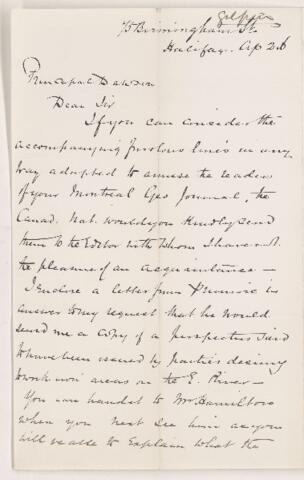 Gilpin
75 Birmingham St.
Halifax. Ap 26
Principal Dawson
Dear Sir
If you can consider the
accompanying lines in any
way adapted to amuse the readers
of your Montreal Geo Journal, the
Canad. Nat. would you kindly send
them to the Editor with whom I have not
the pleasure of an acquaintance —
I enclose a letter from in
answer to my request that he would
send me a copy of a prospectus said
to have been issued by parties desiring
to work iron areas on the E. River —
You can hand it to Mr Hamilton
when you next see him as you
will be able to explain what the